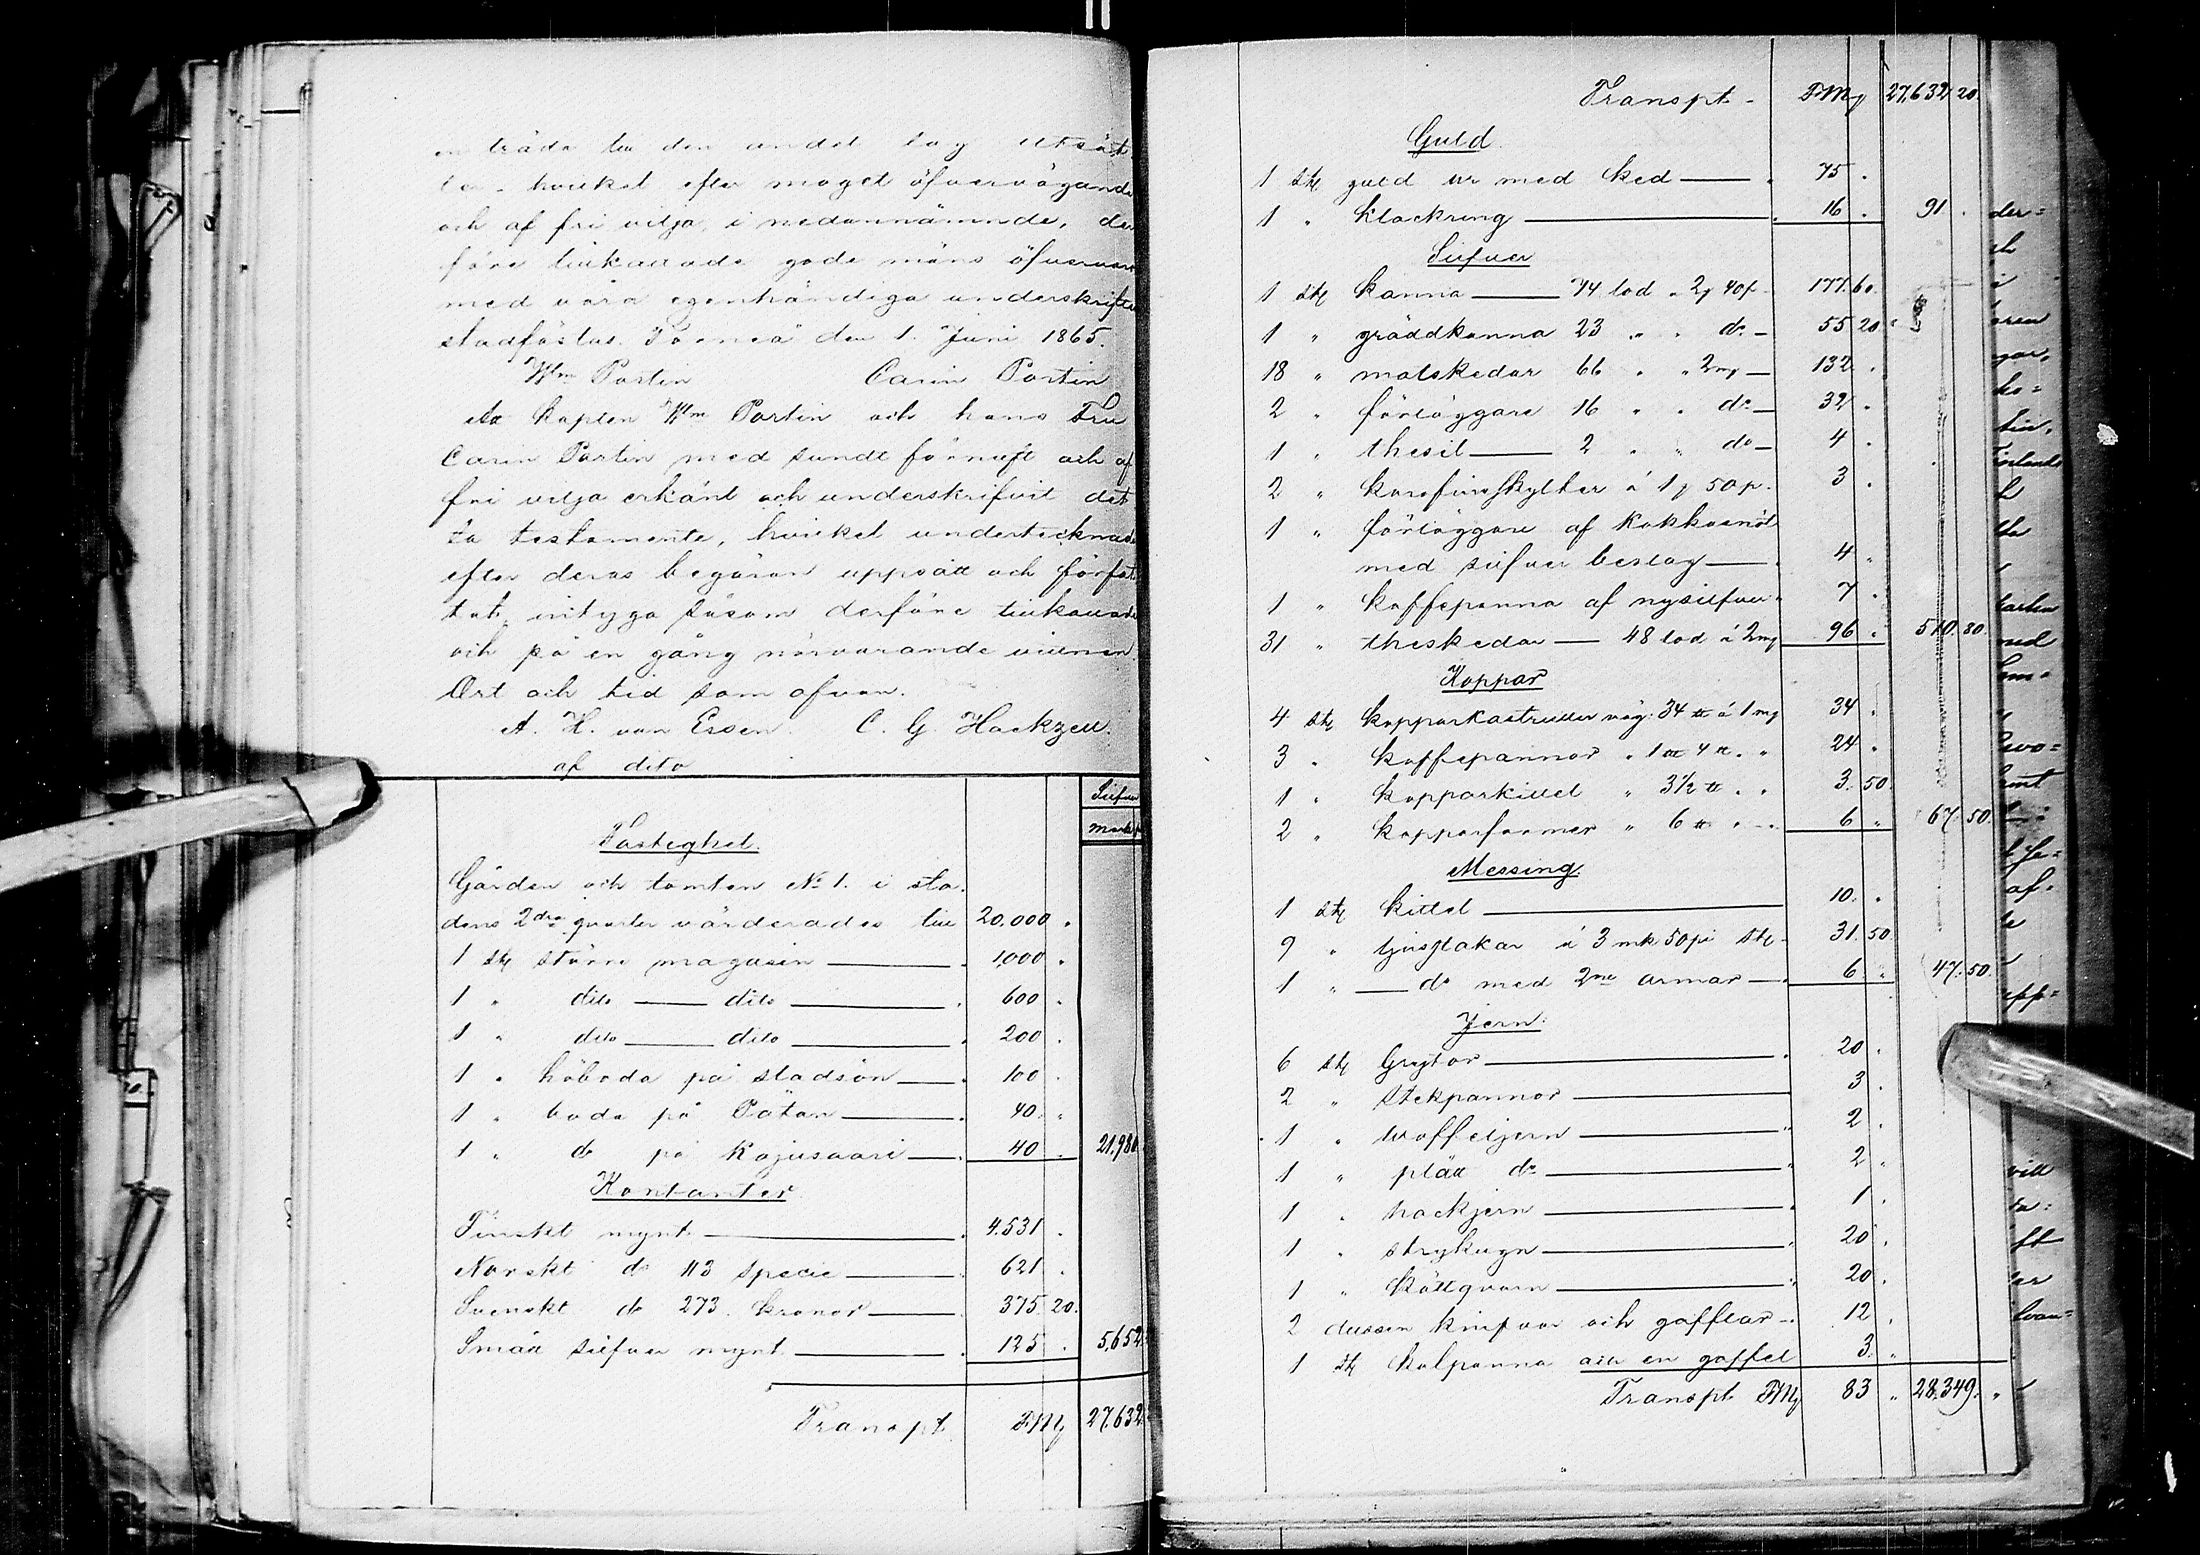 träda till den andel lag utsät
ter. hvilket efter moget öfvervägande
och af fri vilja, i nedannämnde, der
före tillkallade gode mäns öfvervaro
med våra egenhändiga underskrifter
stadfästas. Torneå den 1. Juni 1865.
Wm Portin Carin Portin
Att Kapten Wm Portin och hans Fru
Carin Portin med sundt förnuft och af
fri vilja erkänt och underskrifvit det
ta testamente, hvilket undertecknade
efter deras begäran uppsatt och förfat
tat, intyga såsom derföre tillkallade
och på en gång närvarande vittnen.
Ort och tid som ofvan.
A. H. von Essen. C. G. Hackzell.
af dito
Silfver
Mark
Fastighet.
Gården och tomten No 1. i sta
dens 2dra qvarter värderades till 20,000 "
1 st. större magasin 1,000 "
1 " dito dito 600 "
1 " dito dito 200 "
1 " höbada på stadsön 100 "
1 " bada på Pätan 40 "
1 " do på Kojusaari 40 " 21,980
Kontanter
Finskt mynt 4,531 "
Norskt do 113 specie 621 "
Svenskt do 273 kronor 375 20
Smått silfver mynt 125 " 5,652
Transpt FMk 27,632
Transpt FMk 27,632 20
Guld
1 st. guld ur med ked 75 "
1 " klackring 16 " 91 "
Silfver
1 st. kanna 74 lod " 2 40p 177 60
1 " gräddkanna 23 " " do 55 20
18 " matskedar 66 " " 2 mk 132 "
2 " förläggare 16 " " do 32 "
1 " thesil 2 " " do 4 "
2 " karafinskyltar à 1 50 p. 3 "
1 " förläggare af Kokkosnöt
med silfver beslag 4 "
1 " kaffepanna af nysilfver 7 "
31 " theskedar 48 lod à 2 mk 96 " 510 80
Koppar
4 st. kopparkastruller väg. 34 ℔ à 1 mk 34 "
3 " kaffepannor " 1 4 ℔ " " 24 "
1 " kopparkittel " 3 1/2 ℔ " " 3 50
2 " kopparformar " 6 ℔ " " 6 " 67 50
Messing.
1 st. kittel 10 "
9 " ljusstakar à 3 mk 50 pi st. 31 50
1 " do med 2ne armar 6 " 47 50
Jern.
6 st. Grytor 20 "
2 " stekpannor 3 "
1 " woffeljern 2 "
1 " plätt do 2 "
1 " hackjern 1 "
1 " strykugn 20 "
1 " köttqvarn 20 "
2 dussin knifvar och gafflar 12 "
1 st. kolpanna och en gaffel 3 "
Transpt FMk 83 " 28,349 "